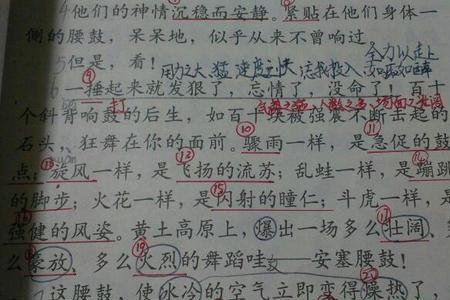 4他们的神情沉稳而安静。紧贴在他们身体一
侧的腰鼓，呆呆地，似乎从来不曾响过。
全力以赴
5但是，看！
用力之猛 速度之快
如醉
⑨
6一捶起来就发狠了，忘情了，没命了！百十
打
个斜背响鼓的后生，如百十块被强震不断击起的
⑩ ⑪
石头，狂舞在你的面前。骤雨一样，是急促的鼓
点；旋风一样，是飞扬的流苏；乱蛙一样，是蹦跳
的脚步；火花一样，是闪射的瞳仁；斗虎一样，是
强健的风姿。黄土高原上，爆出一场多么壮阔、多
么豪放、多么火烈的舞蹈哇——安塞腰鼓！
这腰鼓，使冰冷的空气立即变得燥热了，